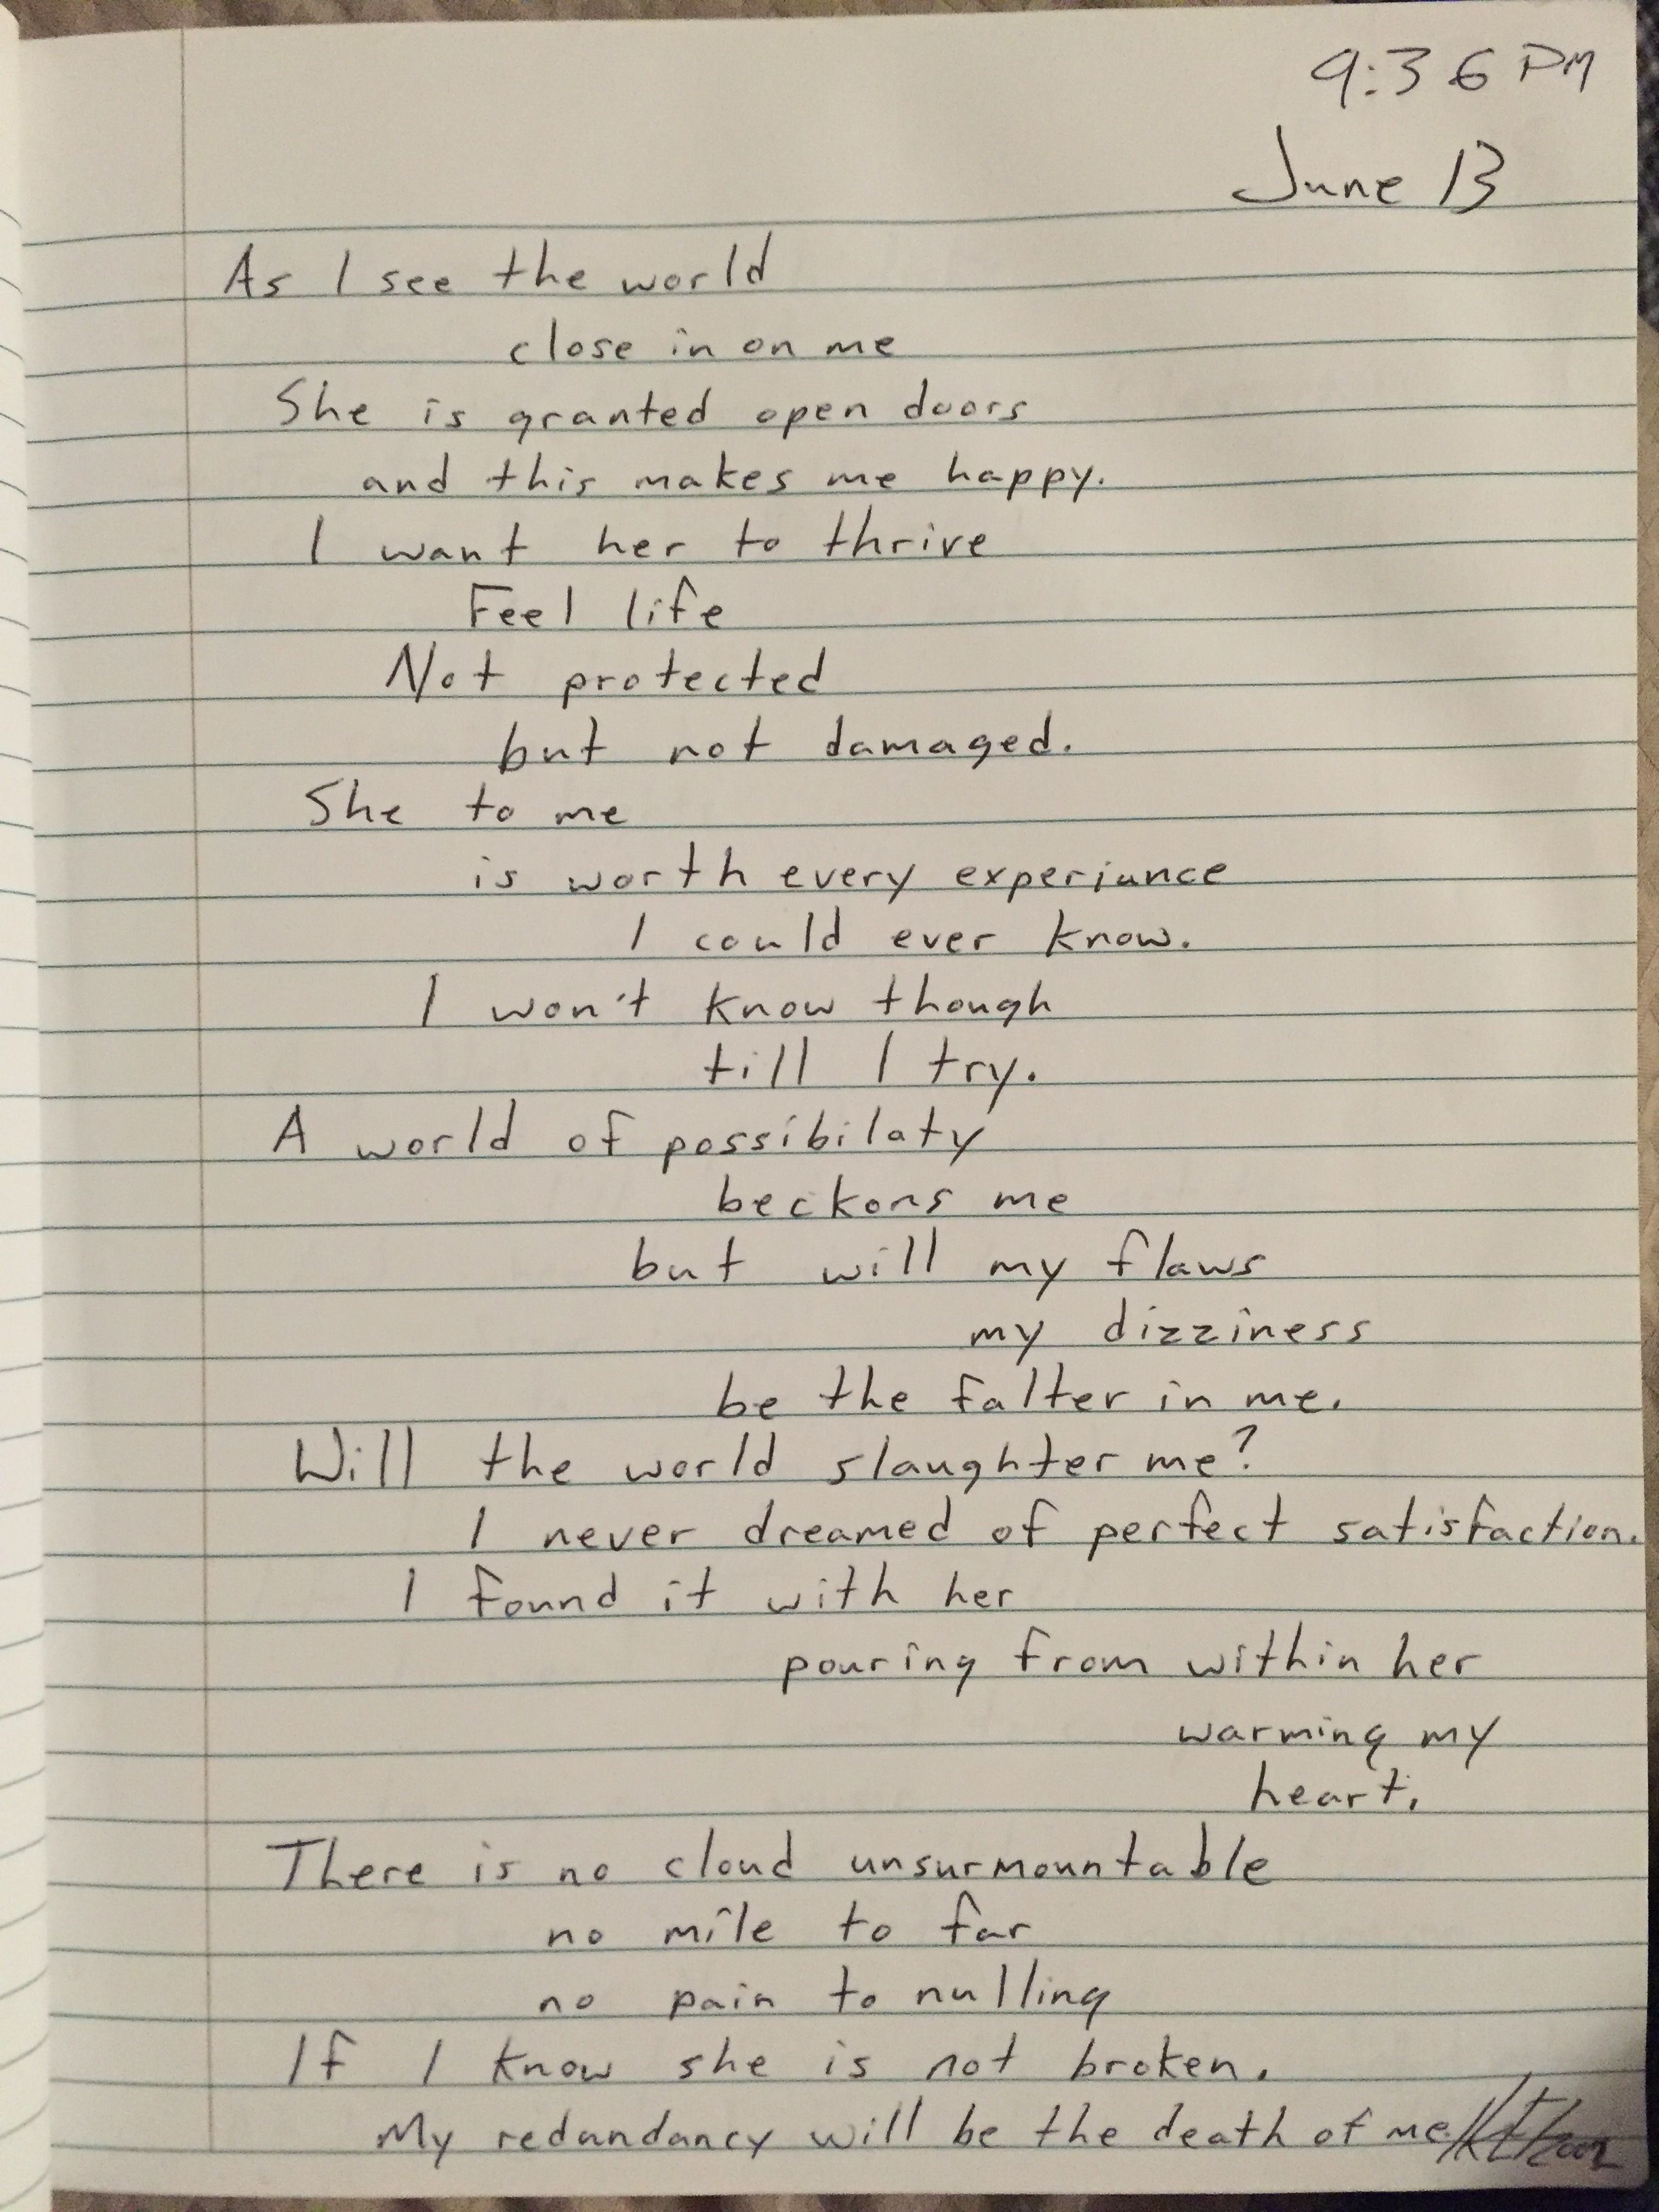 9:36 PM
June 13
As I see the world
close in on me
She is granted open doors
and this makes me happy.
I want her to thrive
Feel life
Not protected
but not damaged.
She to me
is worth every experiance
I could ever know.
I won't know though
till I try.
A world of possibilaty
beckons me
but will my flaws
my dizziness
be the falter in me.
Will the world slaughter me?
I never dreamed of perfect satisfaction.
I found it with her
pouring from within her
warming my
heart.
There is no cloud unsurmountable
no mile to far
no pain to nulling
If I know she is not broken.
My redundancy will be the death of me